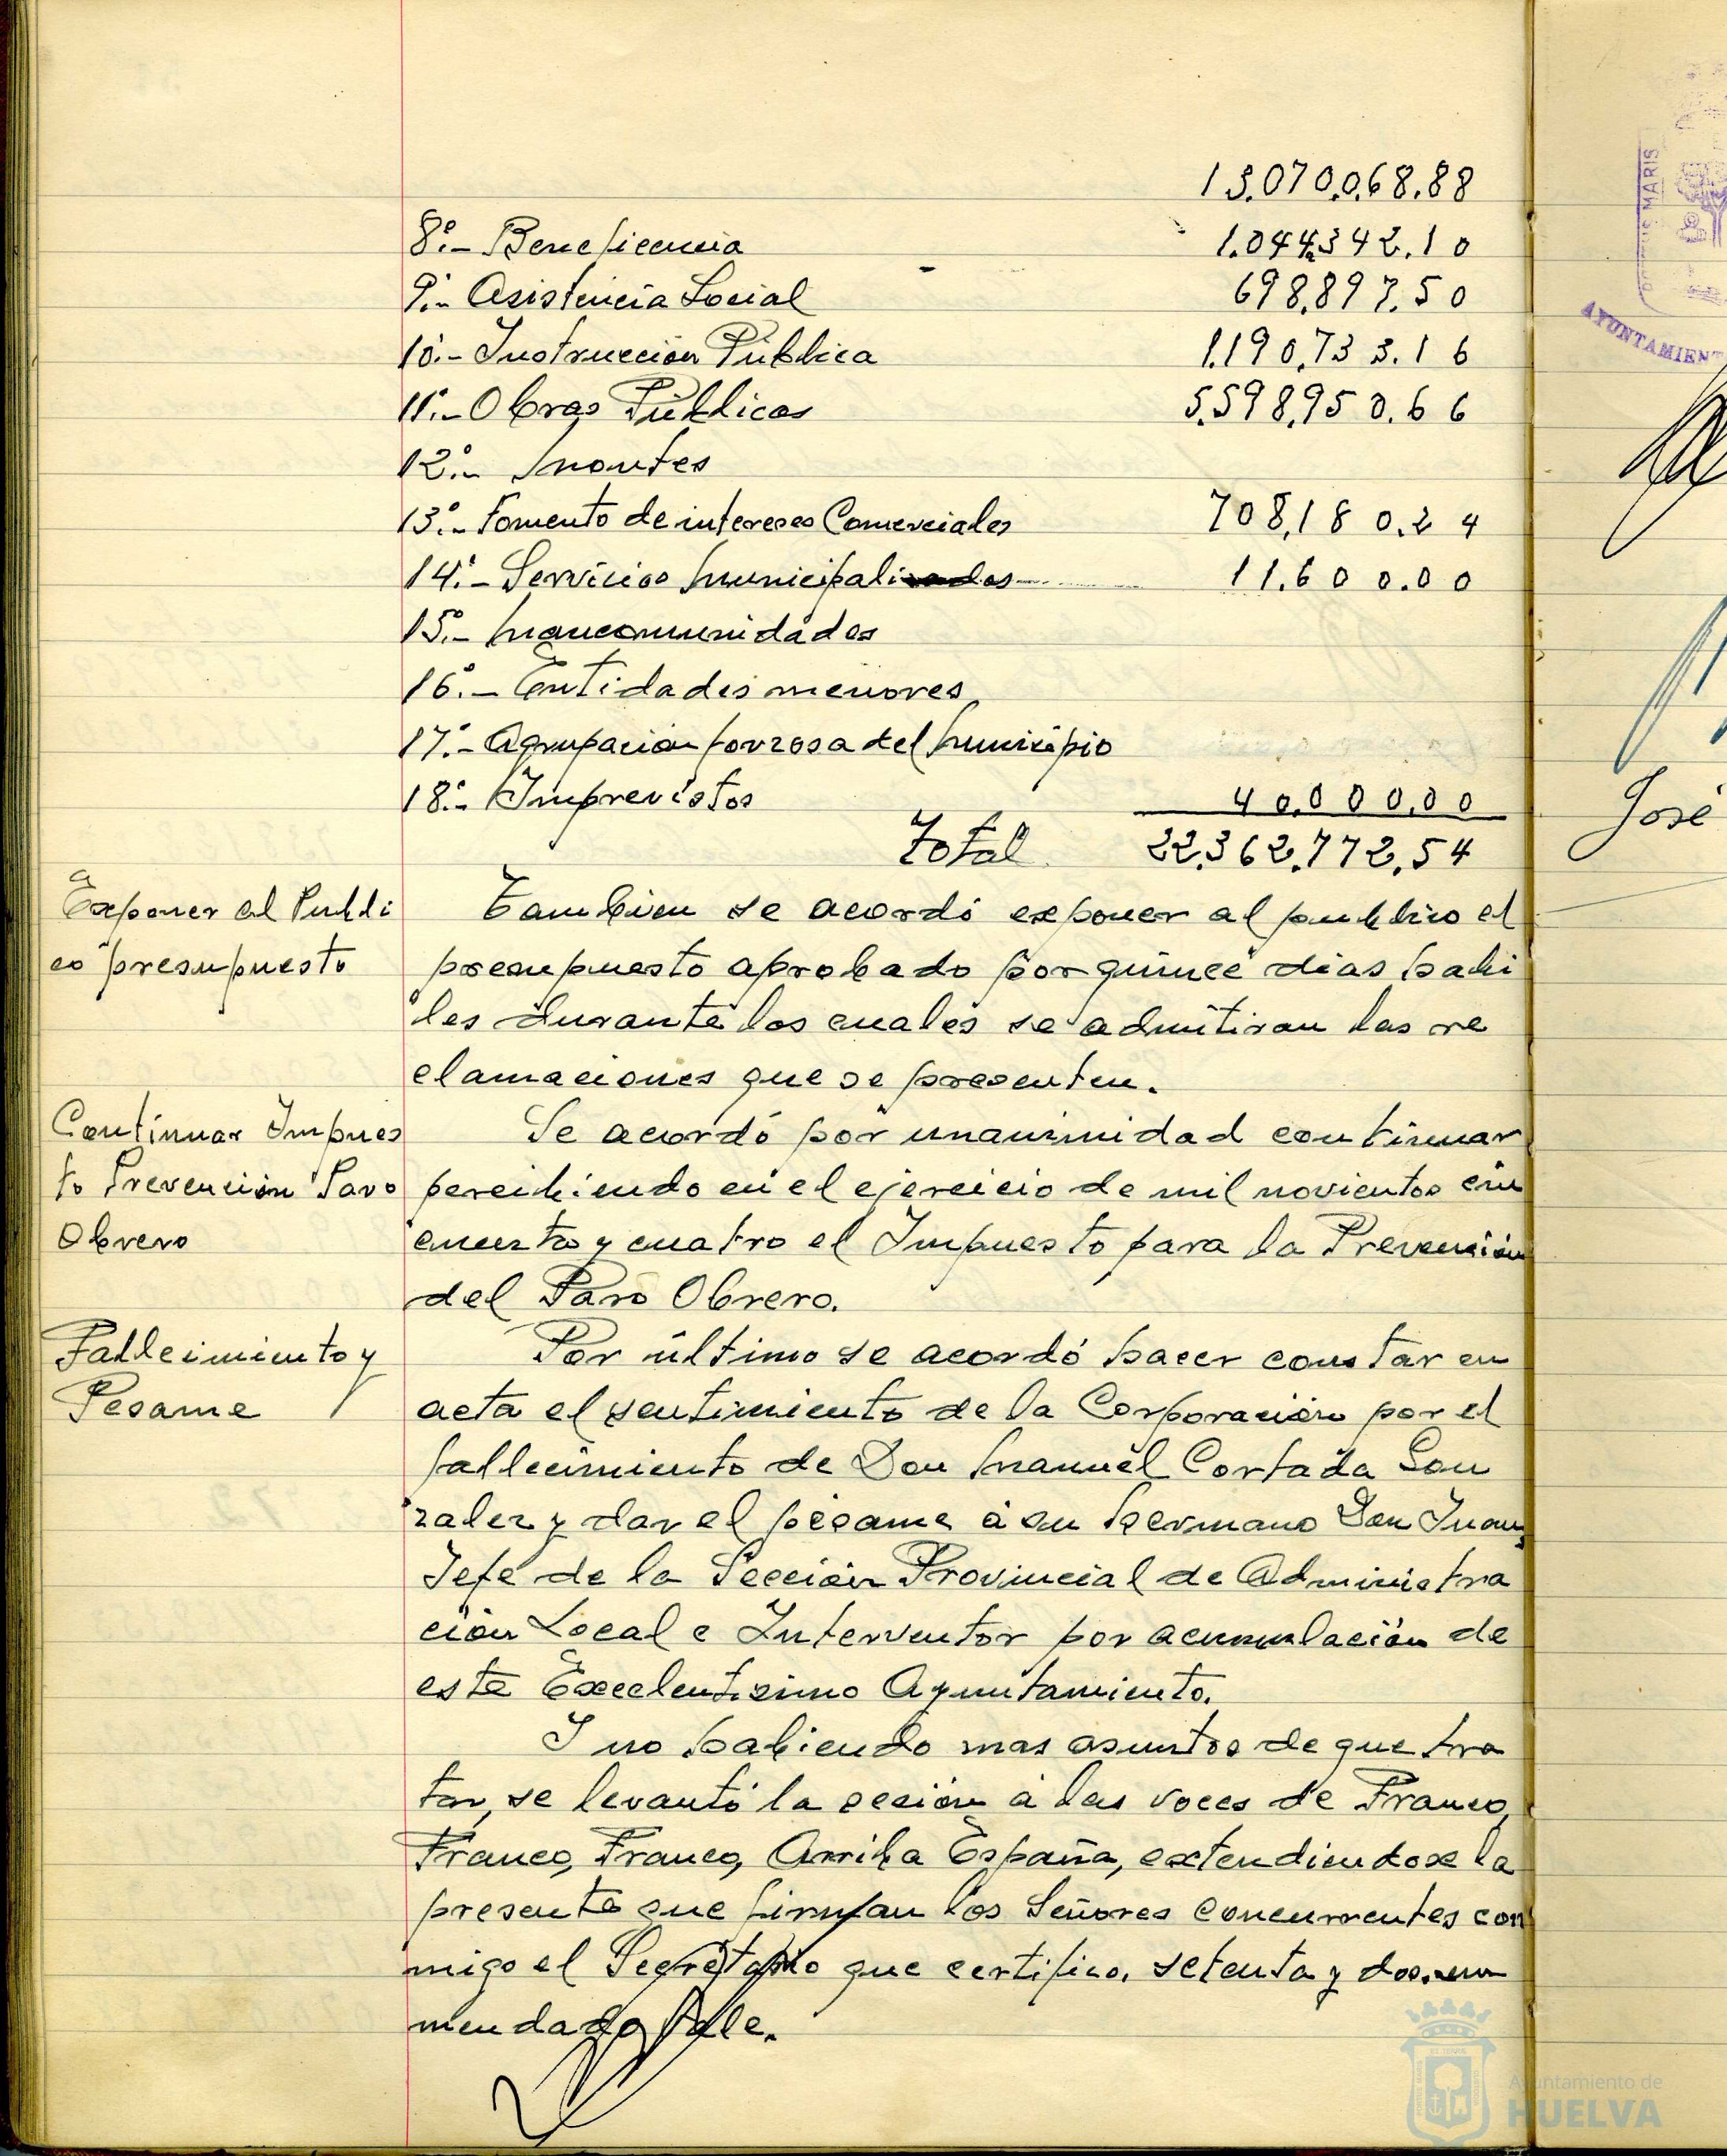 13.070.068.88
8º.- Beneficencia 1.044.342.10
9º.- Asistencia Social 698.897.50
10º.- Instrucción Pública 1.190.733.16
11º.- Obras Públicas 5.598.950.66
12º.- Montes
13º.- Fomento de intereses Comerciales 708.180.24
14º.- Servicios Municipalizados 11.600.00
15º.- Mancomunidades
16º.- Entidades menores
17º.- Agrupacion forzosa del Municipio
18º.- Imprevistos 40.000.00
Total 22.362.772.54
Exponer al Publi
co presupuesto
Tambien se acordó exponer al publico el
presupuesto aprobado por quince dias habi
les durante los cuales se admitiran las re
clamaciones que se presenten.
Continuar Impues
to Prevención Paro
Obrero
Se acordó por unanimidad continuar
percibiendo en el ejercicio de mil novientos cin
cuenta y cuatro el Impuesto para la Prevención
del Paro Obrero.
Fallecimiento y
Pesame
Por último se acordó hacer constar en
acta el sentimiento de la Corporación por el
fallecimiento de Don Manuel Cortada Gon
zalez y dar el pésame á su hermano Don Juan,
Jefe de la Sección Provincial de Administra
ción Local e Interventor por acumulación de
este Excelentisimo Ayuntamiento.
I no habiendo mas asuntos de que tra
tar, se levantó la sesión a las voces de Franco,
Franco, Franco, Arriba España, extendiendose la
presente que firman los Señores Concurrentes con
migo el Secretario que certifico. setenta y dos. en
mendado Vale.
MARIS
AYUNTAMIENT
José
Ayuntamiento de
HUELVA